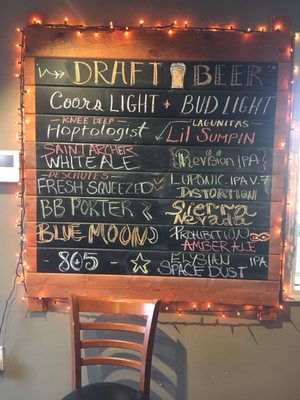 DRAFT BEER
Coors LIGHT + BUD LIGHT
KNEE DEEP
Hoptologist
LAGUNITAS
Lil SUMPIN
SAINT ARCHER
WHITE ALE
{Revision IPA}
DESCHUTES
FRESH SQUEEZED
LUPONIC IPA V.7
DISTORTION
BB PORTER
SIERRA
NEVADA
BLUE MOON
PROHIBITION
AMBER ALE
- 805 -
ELYSIAN IPA
SPACE DUST